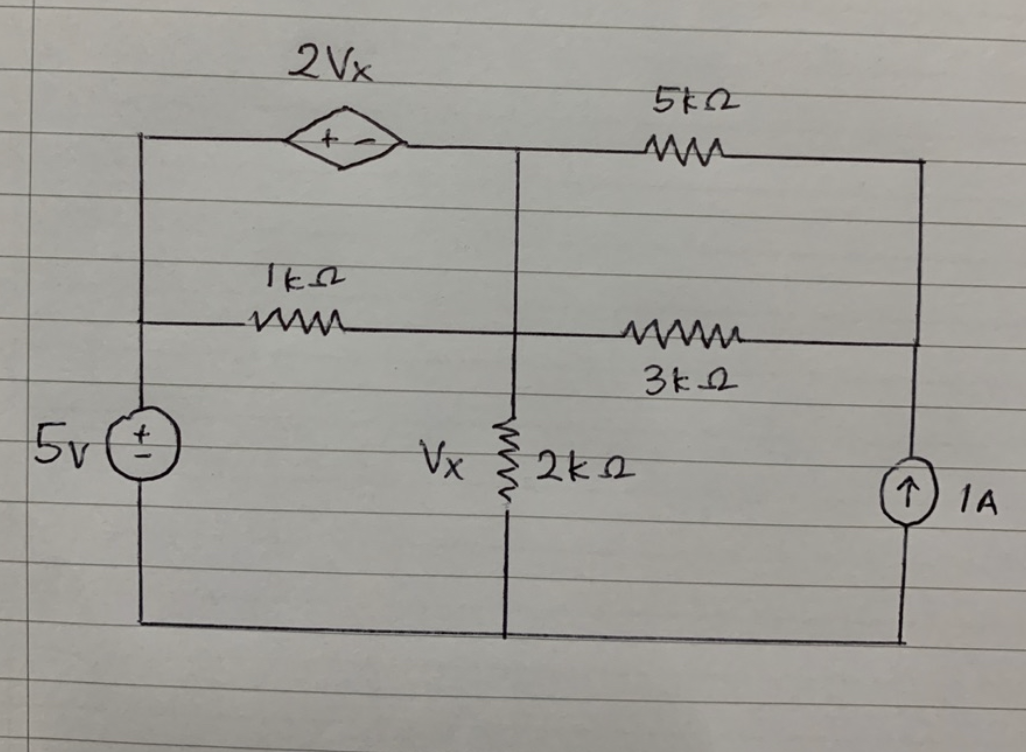 2Vx
+ -
5kΩ
1kΩ
3kΩ
5v
+
-
Vx
2kΩ
↑
1A